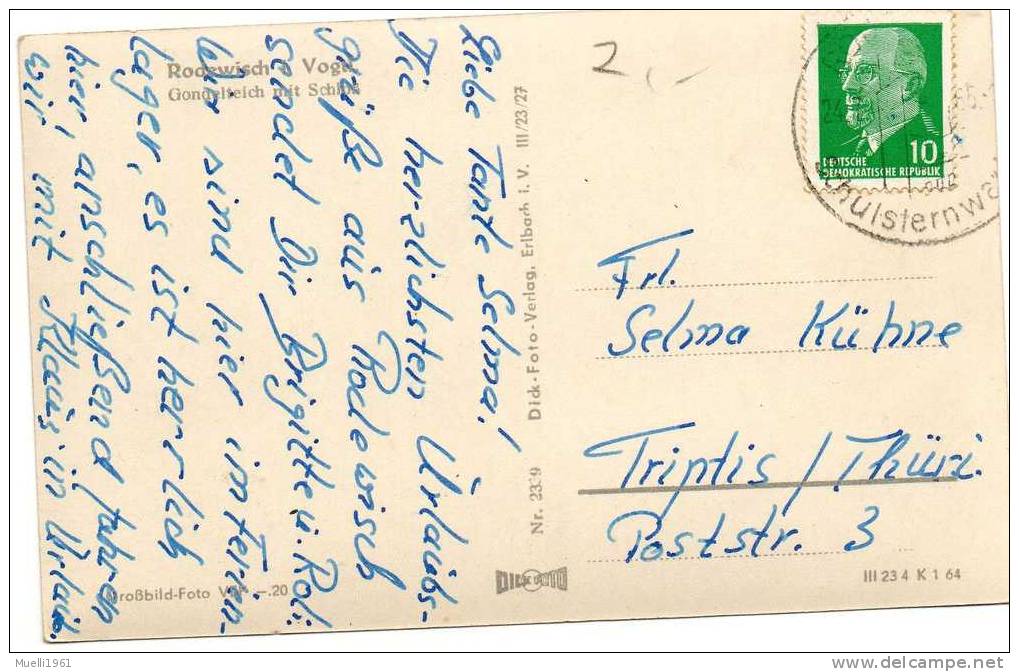 Rodewisch i. Vogtl.
Gondelteich mit Schloß
Liebe Tante Selma!
Die herzlichsten Urlaubs-
grüße aus Rodewisch
sendet Dir Brigitte u. Roli.
Wir sind hier im Ferien-
lager, es ist herrlich
hier, anschließend fahren
wir mit Klaus in Urlaub.
Großbild-Foto -.20
Nr. 2329 Dick-Foto-Verlag, Erlbach i. V. III/23/27
DICK FOTO
2,-
DEUTSCHE
DEMOKRATISCHE REPUBLIK
10
24
Schulsternwa
Frl.
Selma Kühne
Triptis / Thüri.
Poststr. 3
III 23 4 K 1 64
Muelli1961
http://www.delcampe.net